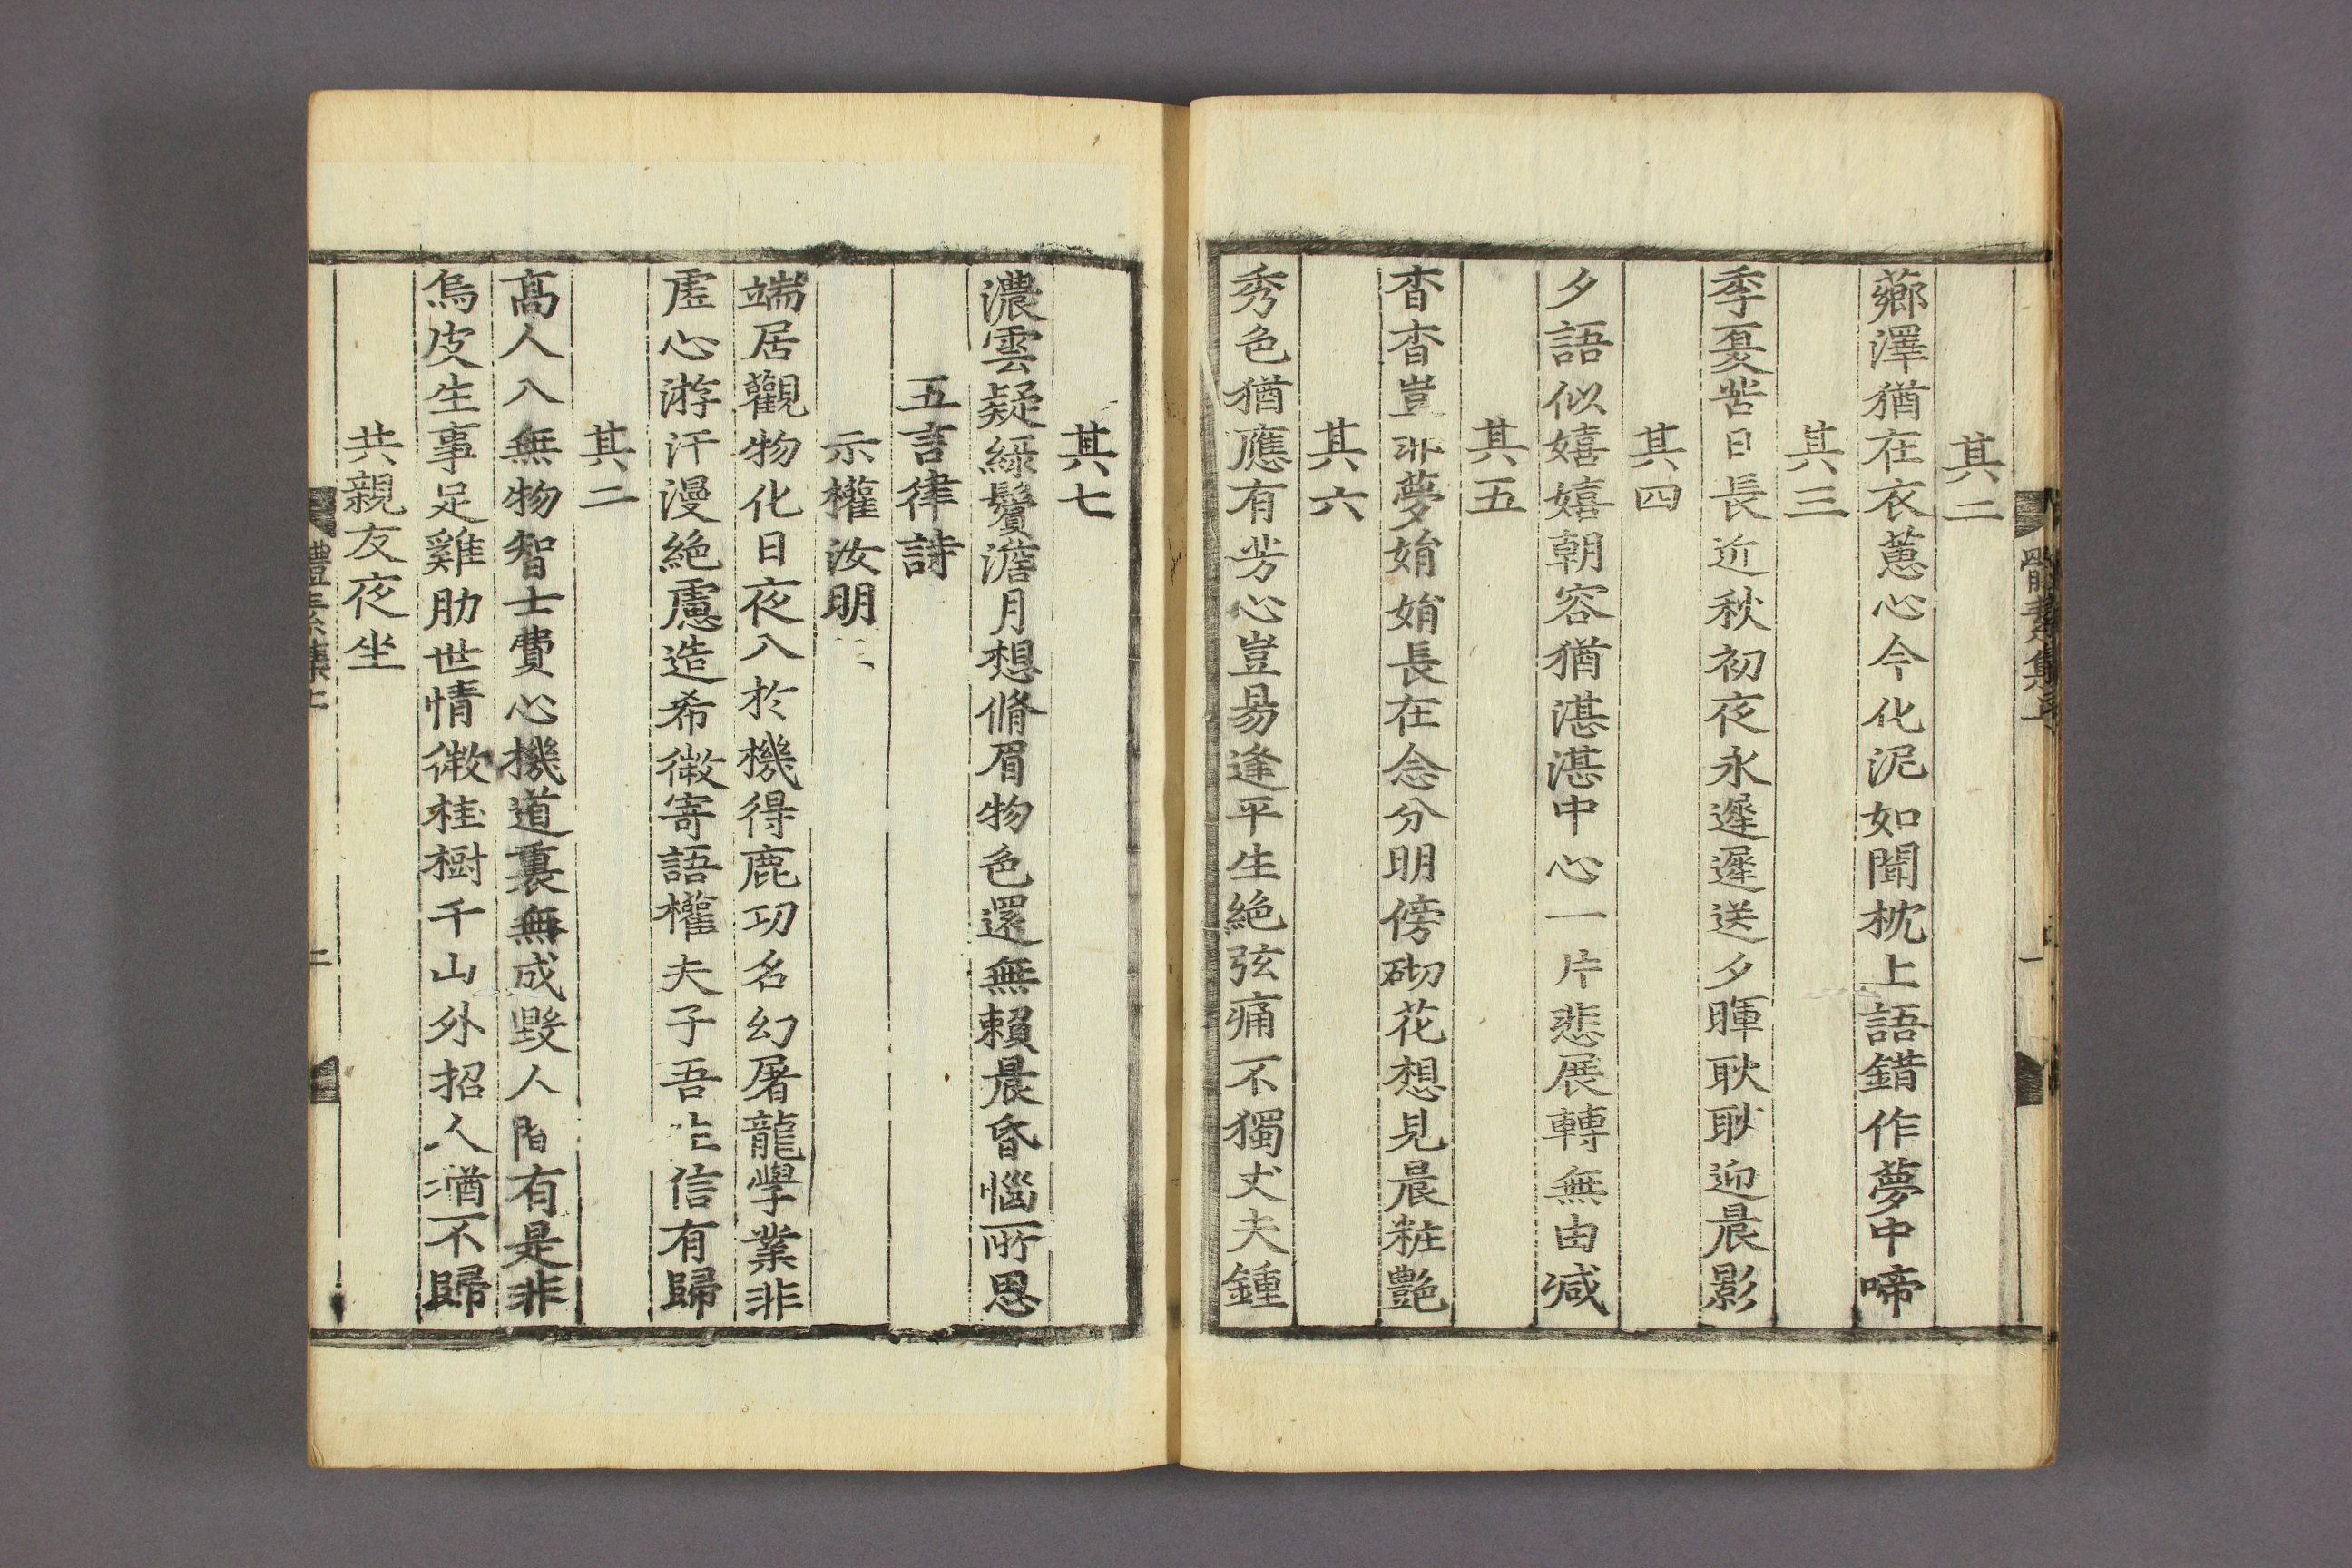 其二
薌澤猶在衣蕙心今化泥如聞枕上語錯作夢中啼
其三
季夏苦日長近秋初夜永遲遲送夕暉耿耿迎晨影
其四
夕語似嬉嬉朝容猶湛湛中心一片悲展轉無由緘
其五
杳杳豈非夢娟娟長在念分明傍砌花想見晨粧艷
其六
秀色猶應有芳心豈易逢平生絶弦痛不獨丈夫鍾
其七
濃雲疑綠鬢澹月想脩眉物色還無賴晨昏惱所思
五言律詩
示權汝明二
端居觀物化日夜入於機得鹿功名幻屠龍學業非
虛心游汗漫絶慮造希微寄語權夫子吾生信有歸
其二
高人入無物智士費心機道裏無成毀人間有是非
烏皮生事足雞肋世情微桂樹千山外招人猶不歸
共親友夜坐
體素集上
二